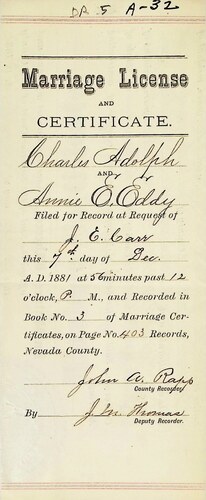 DP. 5 A-32
Marriage License
AND
CERTIFICATE.
Charles Adolph
AND
Annie E. Eddy
Filed for Record at Request of
J. E. Carr
this 7th day of Dec.
A. D. 1881 at 56 minutes past 12
o'clock, P. M., and Recorded in
Book No. 3 of Marriage Cer-
tificates, on Page No. 403 Records,
Nevada County.
John A. Rapp
County Recorder.
By J. M. Thomas
Deputy Recorder.